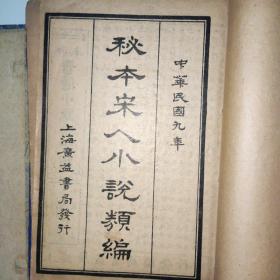 中華民國九年
秘本宋人小說類編
上海廣益書局發行